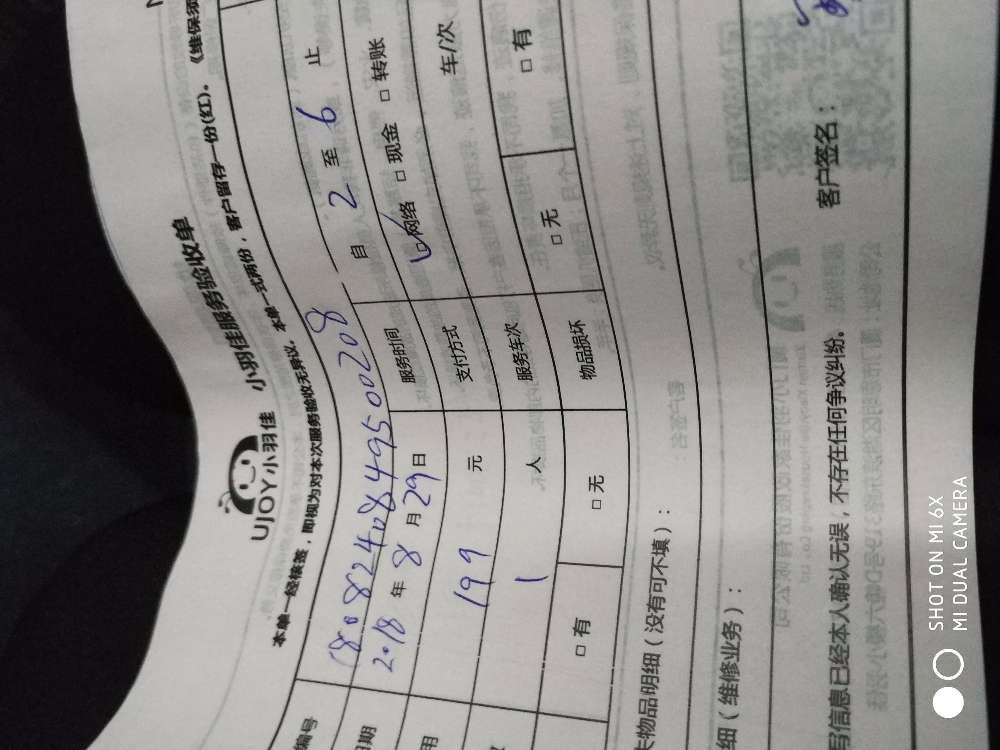 UJOY小羽佳 小羽佳服务验收单
本单一经核签，即视为对本次服务验收无异议。本单一式两份，客户留存一份(红)。《维保须
编号 180824084950 0208
日期 2018年8月29日 服务时间 自 2 至 6 止
用 199 元 支付方式 ☑网络 □现金 □转账
1 人 服务车次 车/次
□有 □无 物品损坏 □无 □有
失物品明细（没有可不填）：
细（维修业务）：
写信息已经本人确认无误，不存在任何争议纠纷。 客户签名：
SHOT ON MI 6X
MI DUAL CAMERA